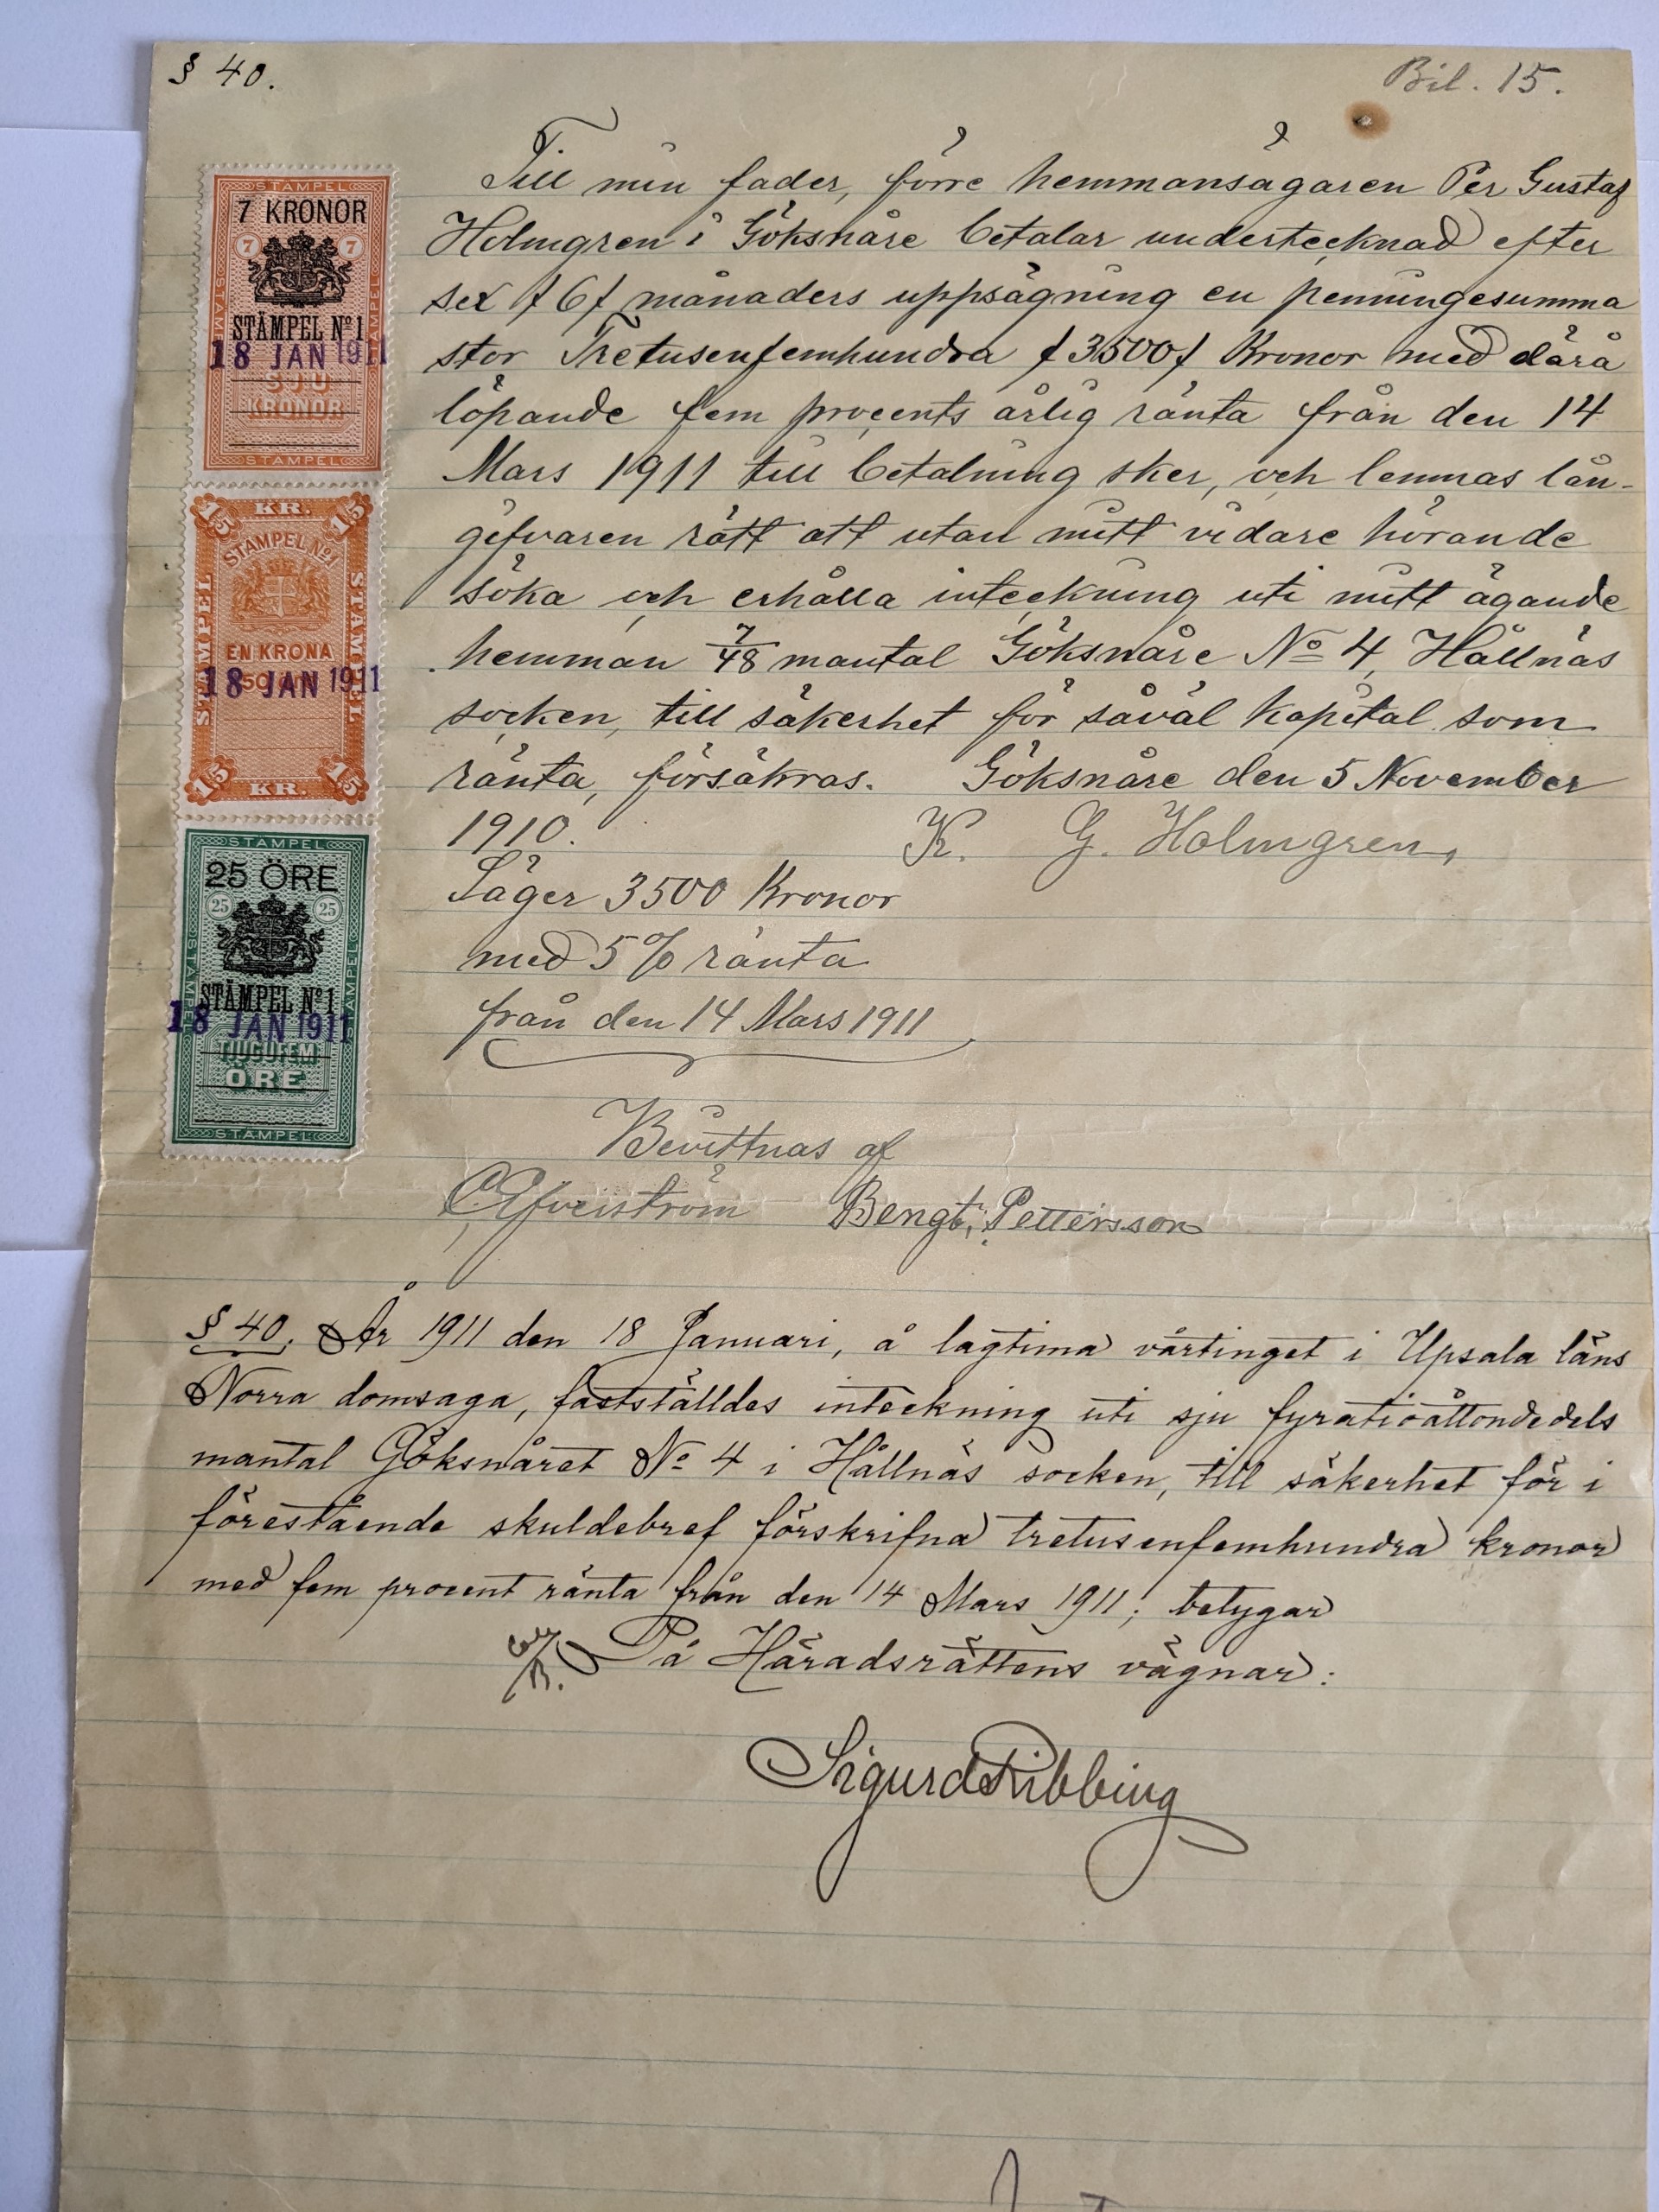 § 40.
Bil. 15.
Till min fader, förre hemmansägaren Per Gustaf
Holmgren i Göksnåre betalar undertecknad efter
sex /6/ månaders uppsägning en penningesumma
stor Tretusenfemhundra /3500/ Kronor med därå
löpande fem procents årlig ränta från den 14
Mars 1911 till betalning sker, och lemnas lån-
gifvaren rätt att utan mitt vidare hörande
söka och erhålla inteckning uti mitt ägande
hemman 7/48 mantal Göksnåre No 4, Hållnäs
socken, till säkerhet för såväl Kapital som
ränta, försäkras. Göksnåre den 5 November
1910. K. G. Holmgren,
Säger 3500 Kronor
med 5% ränta
från den 14 Mars 1911
Bevittnas af
Bengt Pettersson
§ 40. År 1911 den 18 Januari, å lagtima vårtinget i Upsala läns
Norra domsaga, fastställdes inteckning uti sju fyratioåttondedels
mantal Göksnåret No 4 i Hållnäs socken, till säkerhet för i
förestående skuldebref förskrifna tretusenfemhundra kronor
med fem procent ränta från den 14 Mars 1911; betygar
På Häradsrättens vägnar:
Sigurd Ribbing
STÄMPEL
7 KRONOR
7 7
STÄMPEL No 1
18 JAN 1911
SJU
KRONOR
STÄMPEL
STÄMPEL
STÄMPEL
1,5 KR. 1,5
STÄMPEL No 1
EN KRONA
50
18 JAN 1911
STÄMPEL
STÄMPEL
1,5 KR. 1,5
STÄMPEL
25 ÖRE
25 25
STÄMPEL No 1
18 JAN 1911
TJUGUFEM
ÖRE
STÄMPEL
STÄMPEL
STÄMPEL